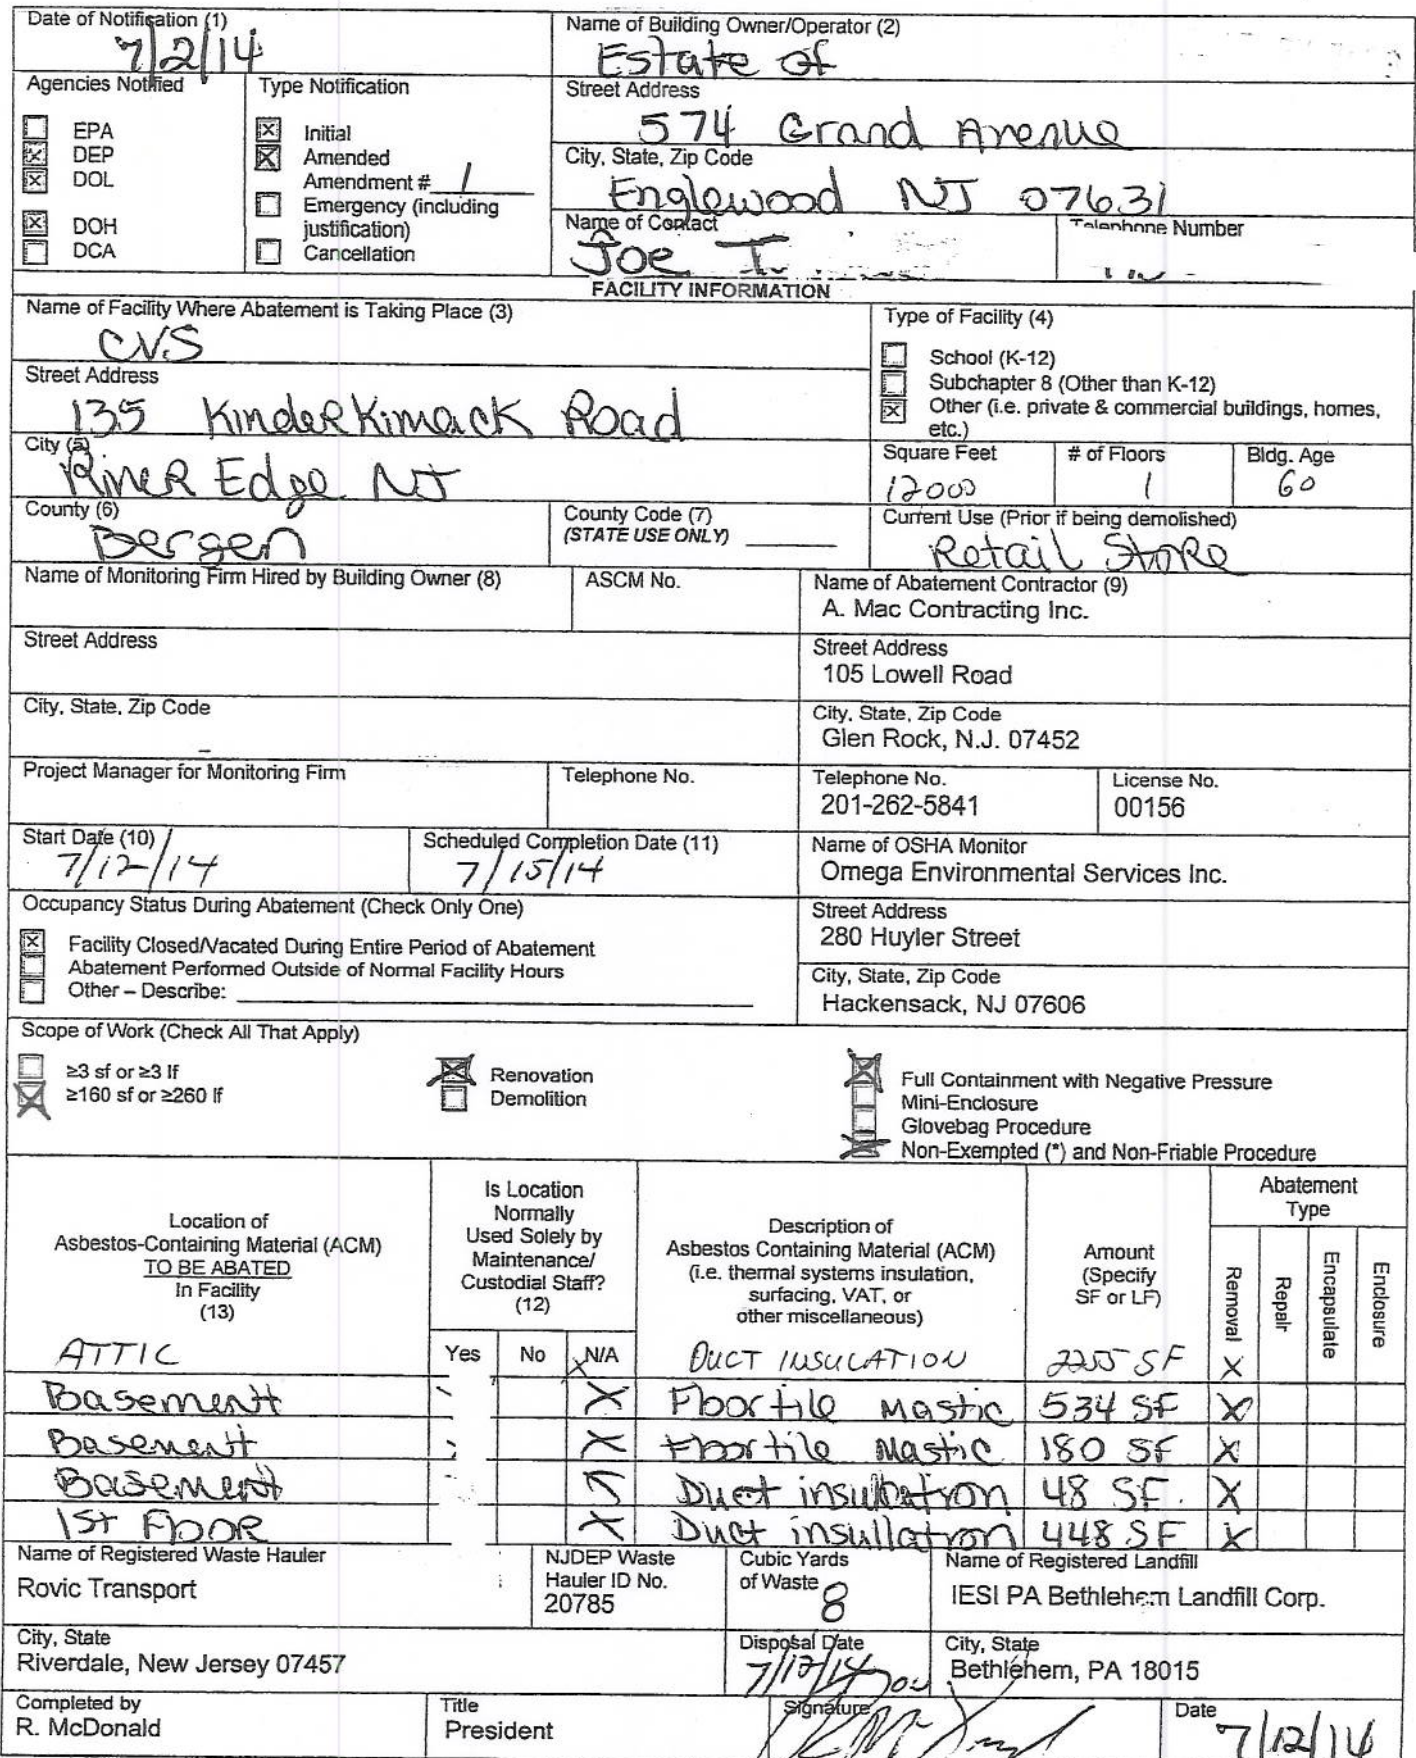 Date of Notification (1)
7/2/14
Name of Building Owner/Operator (2)
Estate of
Agencies Notified
EPA
DEP
DOL
DOH
DCA
Type Notification
Initial
Amended
Amendment # 1
Emergency (including
justification)
Cancellation
Street Address
574 Grand Avenue
City, State, Zip Code
Englewood NJ 07631
Name of Contact
Joe
Telephone Number
FACILITY INFORMATION
Name of Facility Where Abatement is Taking Place (3)
CVS
Street Address
135 Kinderkimack Road
City (5)
River Edge NJ
County (6)
Bergen
County Code (7)
(STATE USE ONLY)
Type of Facility (4)
School (K-12)
Subchapter 8 (Other than K-12)
Other (i.e. private & commercial buildings, homes,
etc.)
Square Feet
12000
# of Floors
1
Bldg. Age
60
Current Use (Prior if being demolished)
Retail Store
Name of Monitoring Firm Hired by Building Owner (8)
ASCM No.
Name of Abatement Contractor (9)
A. Mac Contracting Inc.
Street Address
Street Address
105 Lowell Road
City, State, Zip Code
City, State, Zip Code
Glen Rock, N.J. 07452
Project Manager for Monitoring Firm
Telephone No.
Telephone No.
201-262-5841
License No.
00156
Start Date (10)
7/12/14
Scheduled Completion Date (11)
7/15/14
Name of OSHA Monitor
Omega Environmental Services Inc.
Occupancy Status During Abatement (Check Only One)
Facility Closed/Vacated During Entire Period of Abatement
Abatement Performed Outside of Normal Facility Hours
Other – Describe:
Street Address
280 Huyler Street
City, State, Zip Code
Hackensack, NJ 07606
Scope of Work (Check All That Apply)
≥3 sf or ≥3 lf
≥160 sf or ≥260 lf
Renovation
Demolition
Full Containment with Negative Pressure
Mini-Enclosure
Glovebag Procedure
Non-Exempted (*) and Non-Friable Procedure
Location of
Asbestos-Containing Material (ACM)
TO BE ABATED
In Facility
(13)
Is Location
Normally
Used Solely by
Maintenance/
Custodial Staff?
(12)
Yes No N/A
Description of
Asbestos Containing Material (ACM)
(i.e. thermal systems insulation,
surfacing, VAT, or
other miscellaneous)
Amount
(Specify
SF or LF)
Abatement
Type
Removal
Repair
Encapsulate
Enclosure
ATTIC X DUCT INSULATION 2255 SF X
Basement X Floortile Mastic 534 SF X
Basement X Floortile Mastic 180 SF X
Basement X Duct insulation 48 SF. X
1st Floor X Duct insullation 448 SF X
Name of Registered Waste Hauler
Rovic Transport
NJDEP Waste
Hauler ID No.
20785
Cubic Yards
of Waste
8
Name of Registered Landfill
IESI PA Bethlehem Landfill Corp.
City, State
Riverdale, New Jersey 07457
Disposal Date
7/12/14
City, State
Bethlehem, PA 18015
Completed by
R. McDonald
Title
President
Signature
Date
7/12/14